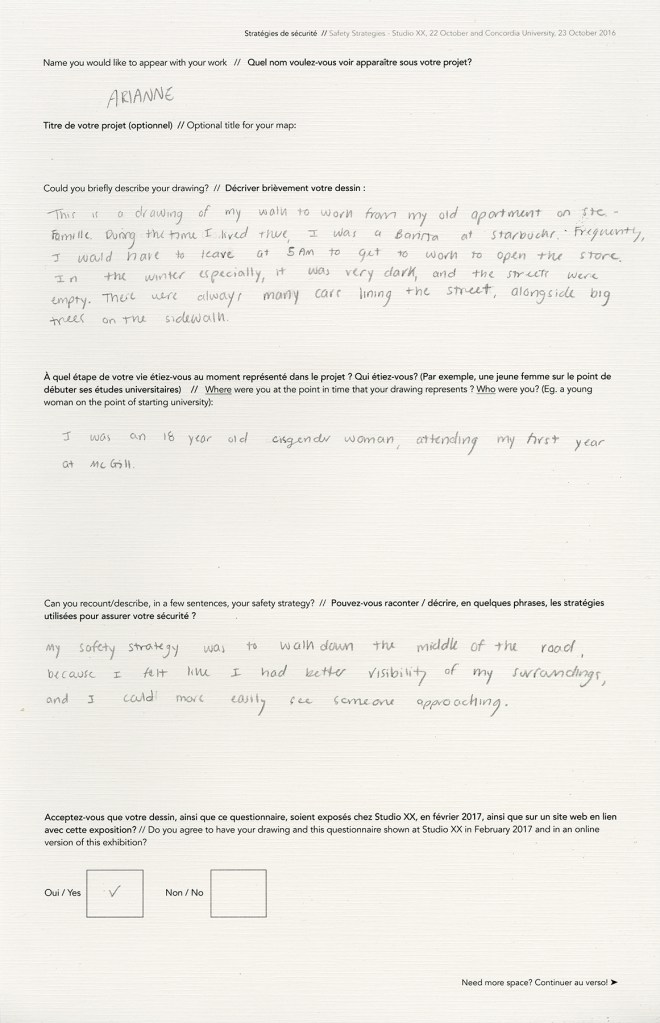 Stratégies de sécurité // Safety Strategies - Studio XX, 22 October and Concordia University, 23 October 2016
Name you would like to appear with your work // Quel nom voulez-vous voir apparaître sous votre projet?
ARIANNE
Titre de votre projet (optionnel) // Optional title for your map:
Could you briefly describe your drawing? // Décriver brièvement votre dessin :
This is a drawing of my walk to work from my old apartment on Ste.-
Famille. During the time I lived there, I was a Barista at Starbucks. Frequently,
I would have to leave at 5 AM to get to work to open the store.
In the winter especially, it was very dark, and the streets were
empty. There were always many cars lining the street, alongside big
trees on the sidewalk.
À quel étape de votre vie étiez-vous au moment représenté dans le projet ? Qui étiez-vous? (Par exemple, une jeune femme sur le point de
débuter ses études universitaires) // Where were you at the point in time that your drawing represents ? Who were you? (Eg. a young
woman on the point of starting university):
I was an 18 year old cisgender woman, attending my first year
at McGill.
Can you recount/describe, in a few sentences, your safety strategy? // Pouvez-vous raconter / décrire, en quelques phrases, les stratégies
utilisées pour assurer votre sécurité ?
My safety strategy was to walk down the middle of the road,
because I felt like I had better visibility of my surroundings,
and I could more easily see someone approaching.
Acceptez-vous que votre dessin, ainsi que ce questionnaire, soient exposés chez Studio XX, en février 2017, ainsi que sur un site web en lien
avec cette exposition? // Do you agree to have your drawing and this questionnaire shown at Studio XX in February 2017 and in an online
version of this exhibition?
Oui / Yes ✓ Non / No
Need more space? Continuer au verso! ➤